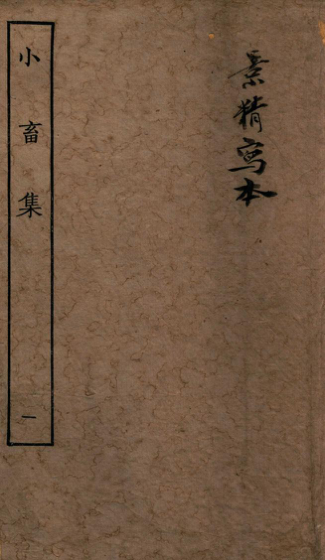 景精寫本
小畜集
一